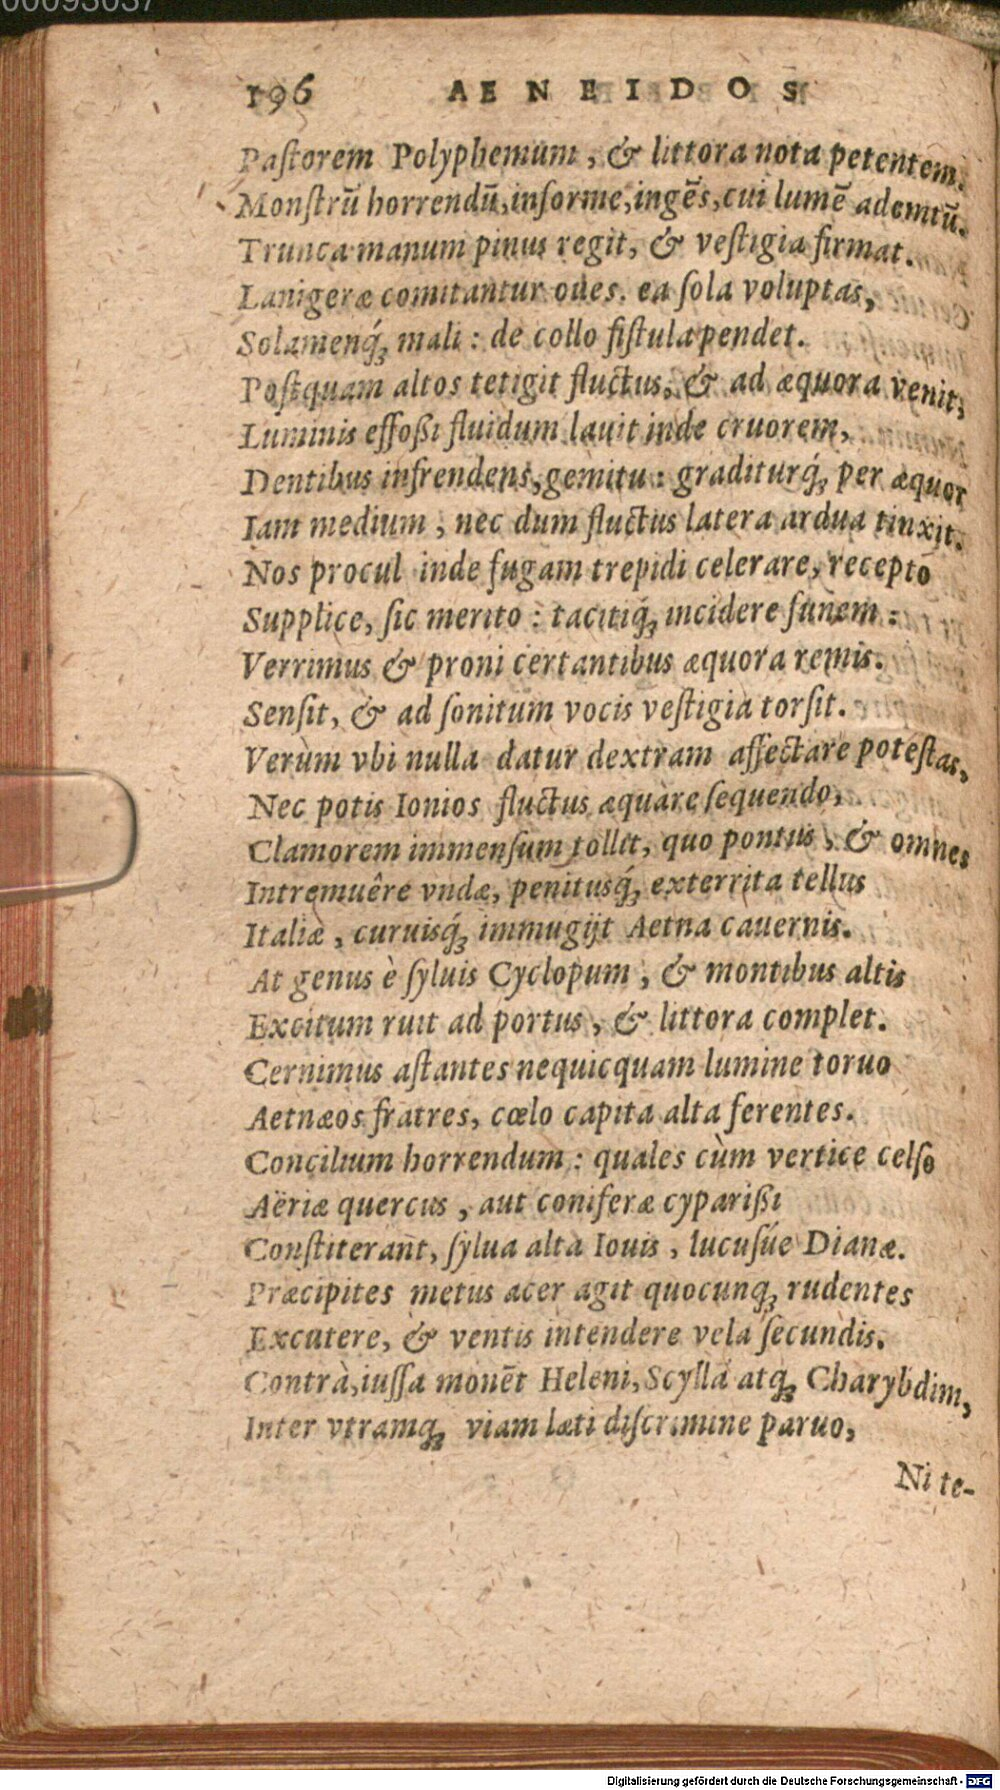 00093037
196 AENEIDOS
Paſtorem Polyphemum, & littora nota petentem.
Monſtrū horrendū, informe, ingēs, cui lumē ademtū.
Trunca manum pinus regit, & veſtigia firmat.
Lanigeræ comitantur oues. ea ſola voluptas,
Solamenq́; mali: de collo fiſtula pendet.
Poſtquam altos tetigit fluctus, & ad æquora venit,
Luminis effoßi fluidum lauit inde cruorem,
Dentibus infrendens, gemitu: graditurq́; per æquor
Iam medium, nec dum fluctus latera ardua tinxit.
Nos procul inde fugam trepidi celerare, recepto
Supplice, ſic merito: tacitiq́; incidere funem:
Verrimus & proni certantibus æquora remis.
Senſit, & ad ſonitum vocis veſtigia torſit.
Verùm vbi nulla datur dextram affectare poteſtas,
Nec potis Ionios fluctus æquare ſequendo,
Clamorem immenſum tollit, quo pontus, & omnes
Intremuêre vndæ, penitusq́; exterrita tellus
Italiæ, curuisq́; immugijt Aetna cauernis.
At genus è ſyluis Cyclopum, & montibus altis
Excitum ruit ad portus, & littora complet.
Cernimus aſtantes nequicquam lumine toruo
Aetnæos fratres, cœlo capita alta ferentes.
Concilium horrendum: quales cùm vertice celſo
Aëriæ quercus, aut coniferæ cyparißi
Conſtiterant, ſylua alta Iouis, lucuſúe Dianæ.
Præcipites metus acer agit quocunq; rudentes
Excutere, & ventis intendere vela ſecundis.
Contrà, iuſſa monēt Heleni, Scyllá atq; Charybdim,
Inter vtramq; viam læti diſcrimine paruo,
Ni te-
Digitalisierung gefördert durch die Deutsche Forschungsgemeinschaft - DFG